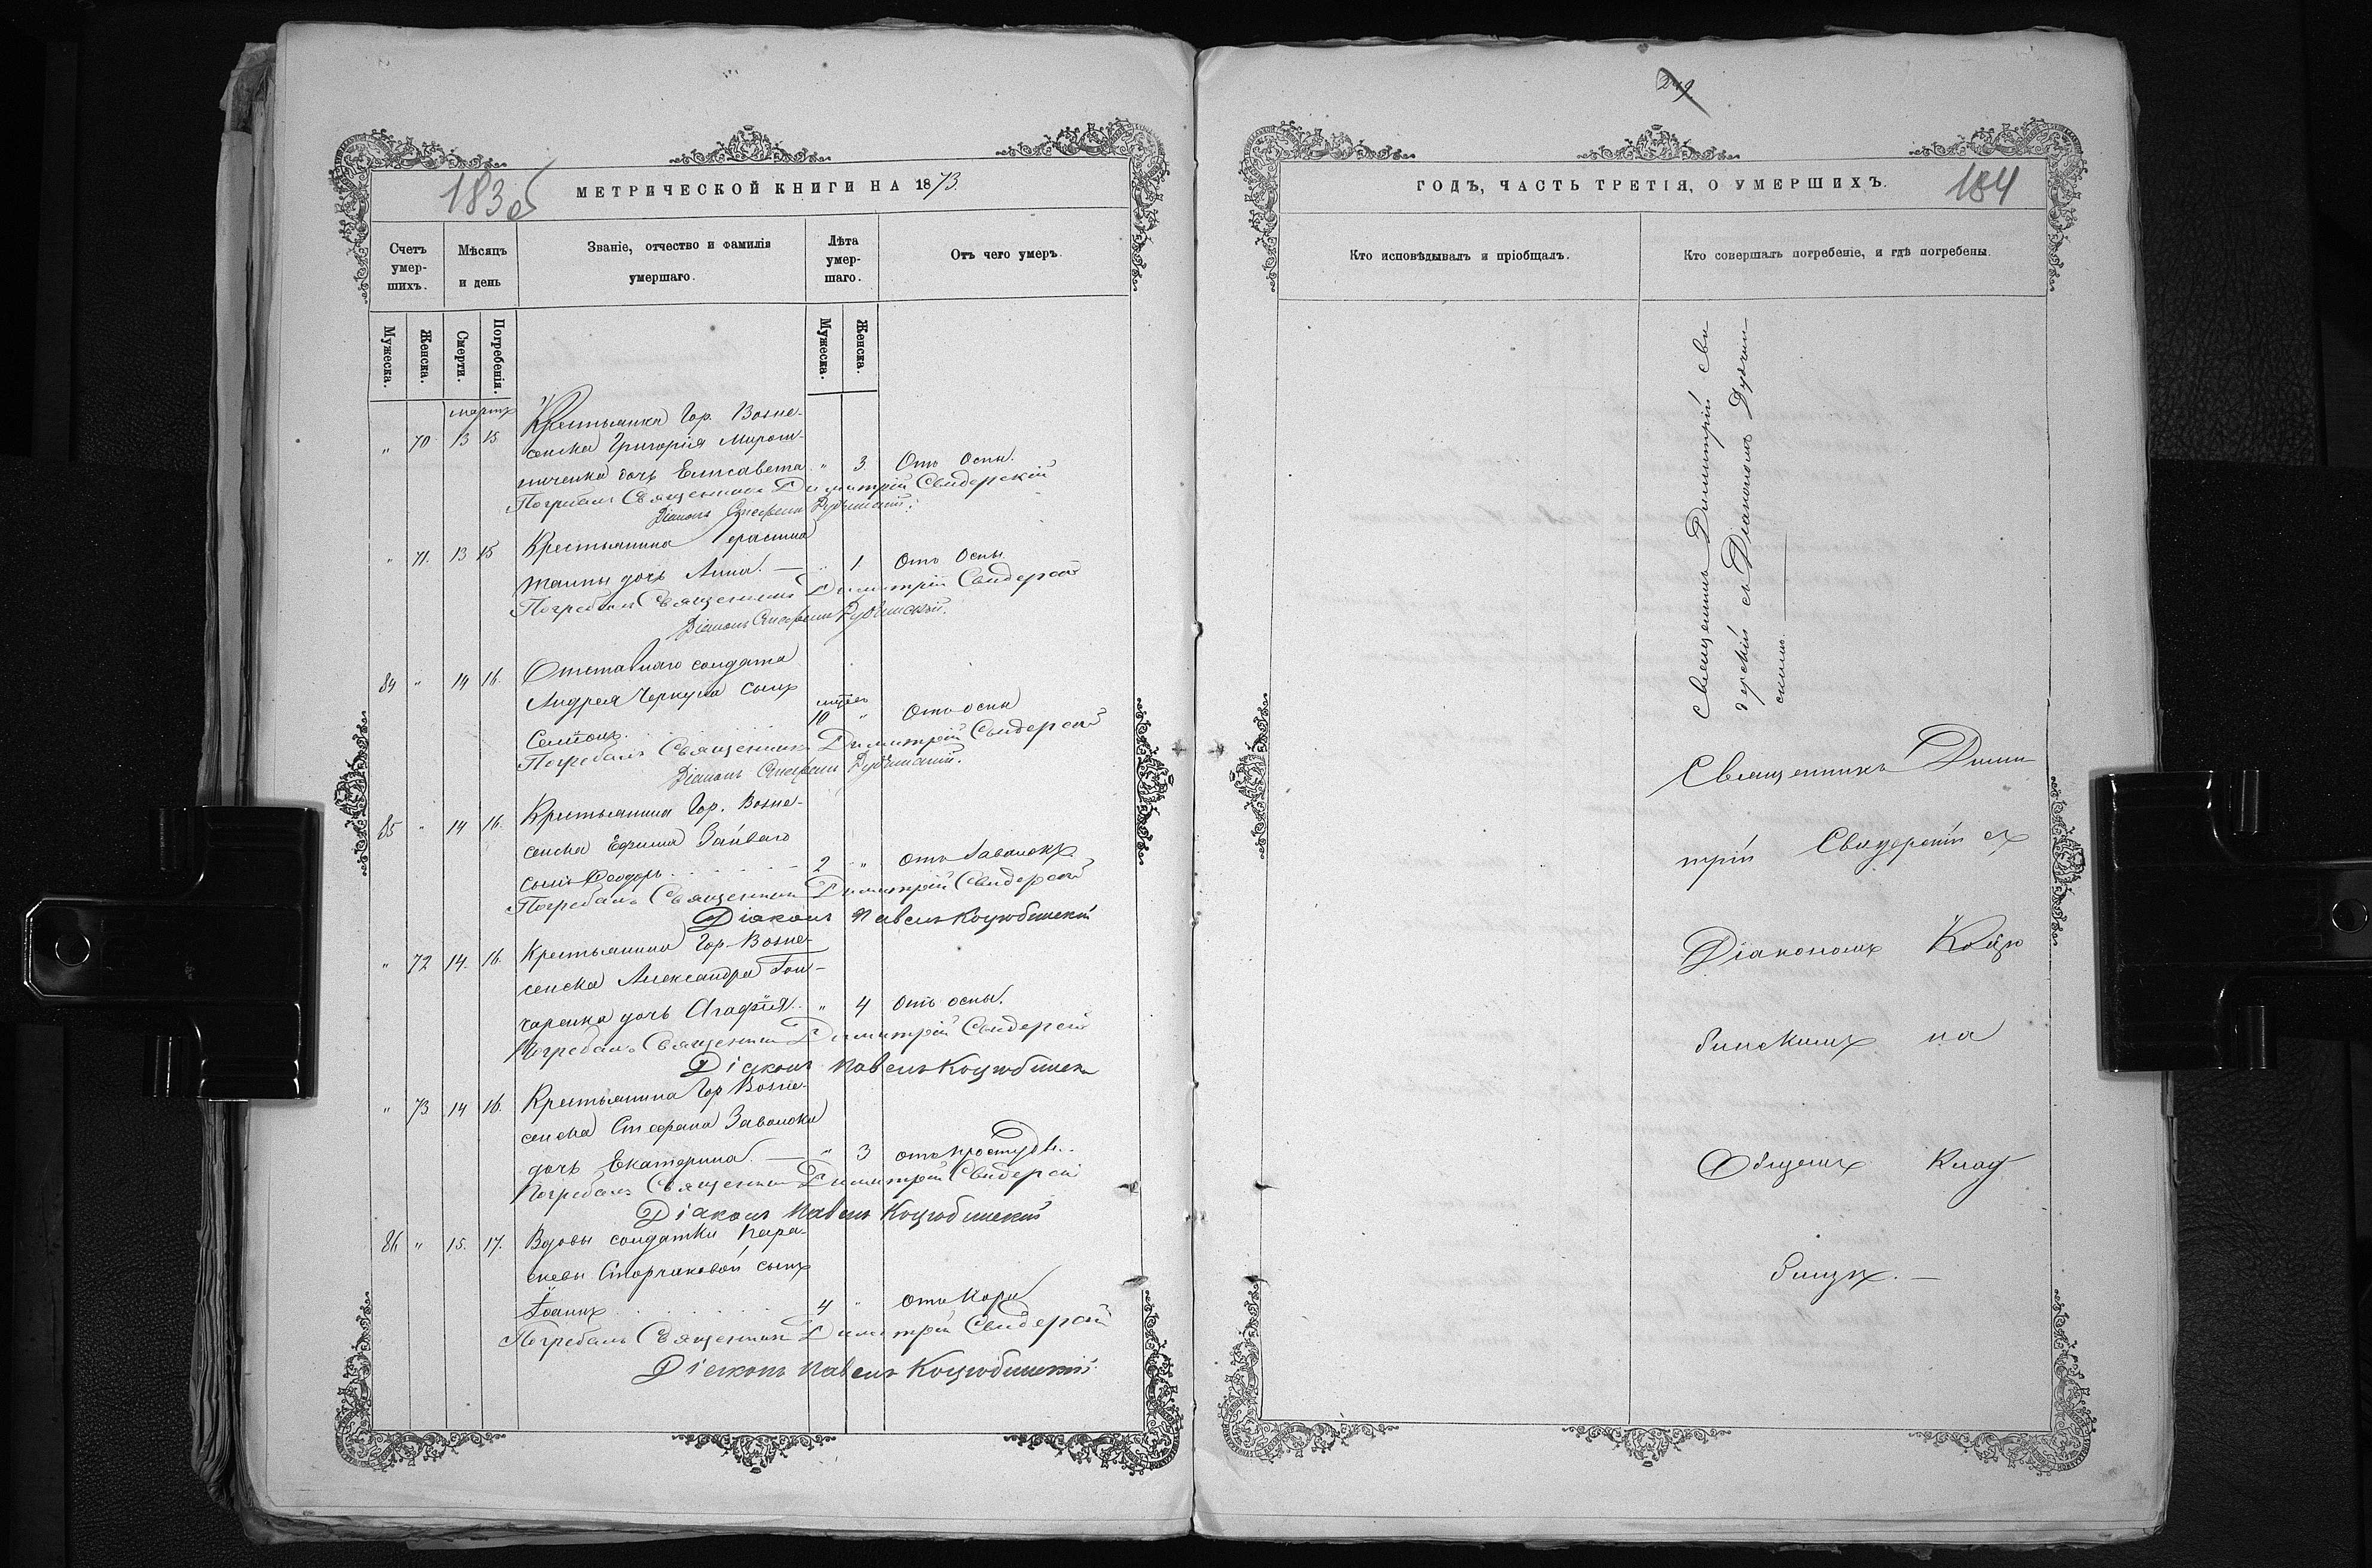 183об
МЕТРИЧЕСКОЙ КНИГИ НА 1873.
Счетъ умер-шихъ.
Мѣсяцъ и день
Званіе, отчество и фамилія умершаго.
Лѣта умер-шаго.
Отъ чего умеръ.
Мужеска.
Женска.
Смерти.
Погребенія.
Мужеска.
Женска.
мартъ
Крестьянка Гор. Возне-
" 70 13 15 сенска Григорія Мирош-
ниченка дочь Елисавета " 3 Отъ Оспы.
Погребалъ Священникъ Димитрій Свидерскій
Діаконъ
" 71. 13 15 Крестьянина Герасима
дочь Анна. — " 1 Отъ Оспы
Погребалъ Священникъ Димитрій Свидерскій
Діаконъ
84 " 14 16. Отставнаго солдата
Андрея сынъ
10 " Отъ оспы
Погребалъ Священникъ Димитрій Свидерскій
Діаконъ
85 " 14 16. Крестьянина Гор. Возне-
сенска Ефима
сынъ Ѳеодоръ 2 " отъ
Погребалъ Священникъ Димитрій Свидерскій
Діаконъ Павелъ Коцюбинскій
" 72 14. 16. Крестьянина Гор. Возне-
сенска Александра Гон-
чаренка дочь Агафія " 4 отъ оспы.
Погребалъ Священникъ Димитрій Свидерскій
Діаконъ Павелъ Коцюбинскій
" 73 14 16. Крестьянина Гор. Возне-
сенска Стефана Заволоки
дочь Екатерина. — " 3 отъ простуды.
Погребалъ Священникъ Димитрій Свидерскій
Діаконъ Павелъ Коцюбинскій
86 " 15. 17. Вдовы солдатки Пара-
скевы сынъ
Іоаннъ 4 " отъ Кори
Погребалъ Священникъ Димитрій Свидерскій
Діаконъ Павелъ Коцюбинскій
184
ГОДЪ, ЧАСТЬ ТРЕТІЯ, О УМЕРШИХЪ.
Кто исповѣдывалъ и пріобщалъ.
Кто совершалъ погребеніе, и гдѣ погребены.
Священникъ Димитрій Сви
дерскій съ Діакономъ
скимъ.
Священникъ Дими
трій Свидерскій съ
Діакономъ Коцю
бинскимъ на
Общемъ Клад
бищѣ. —